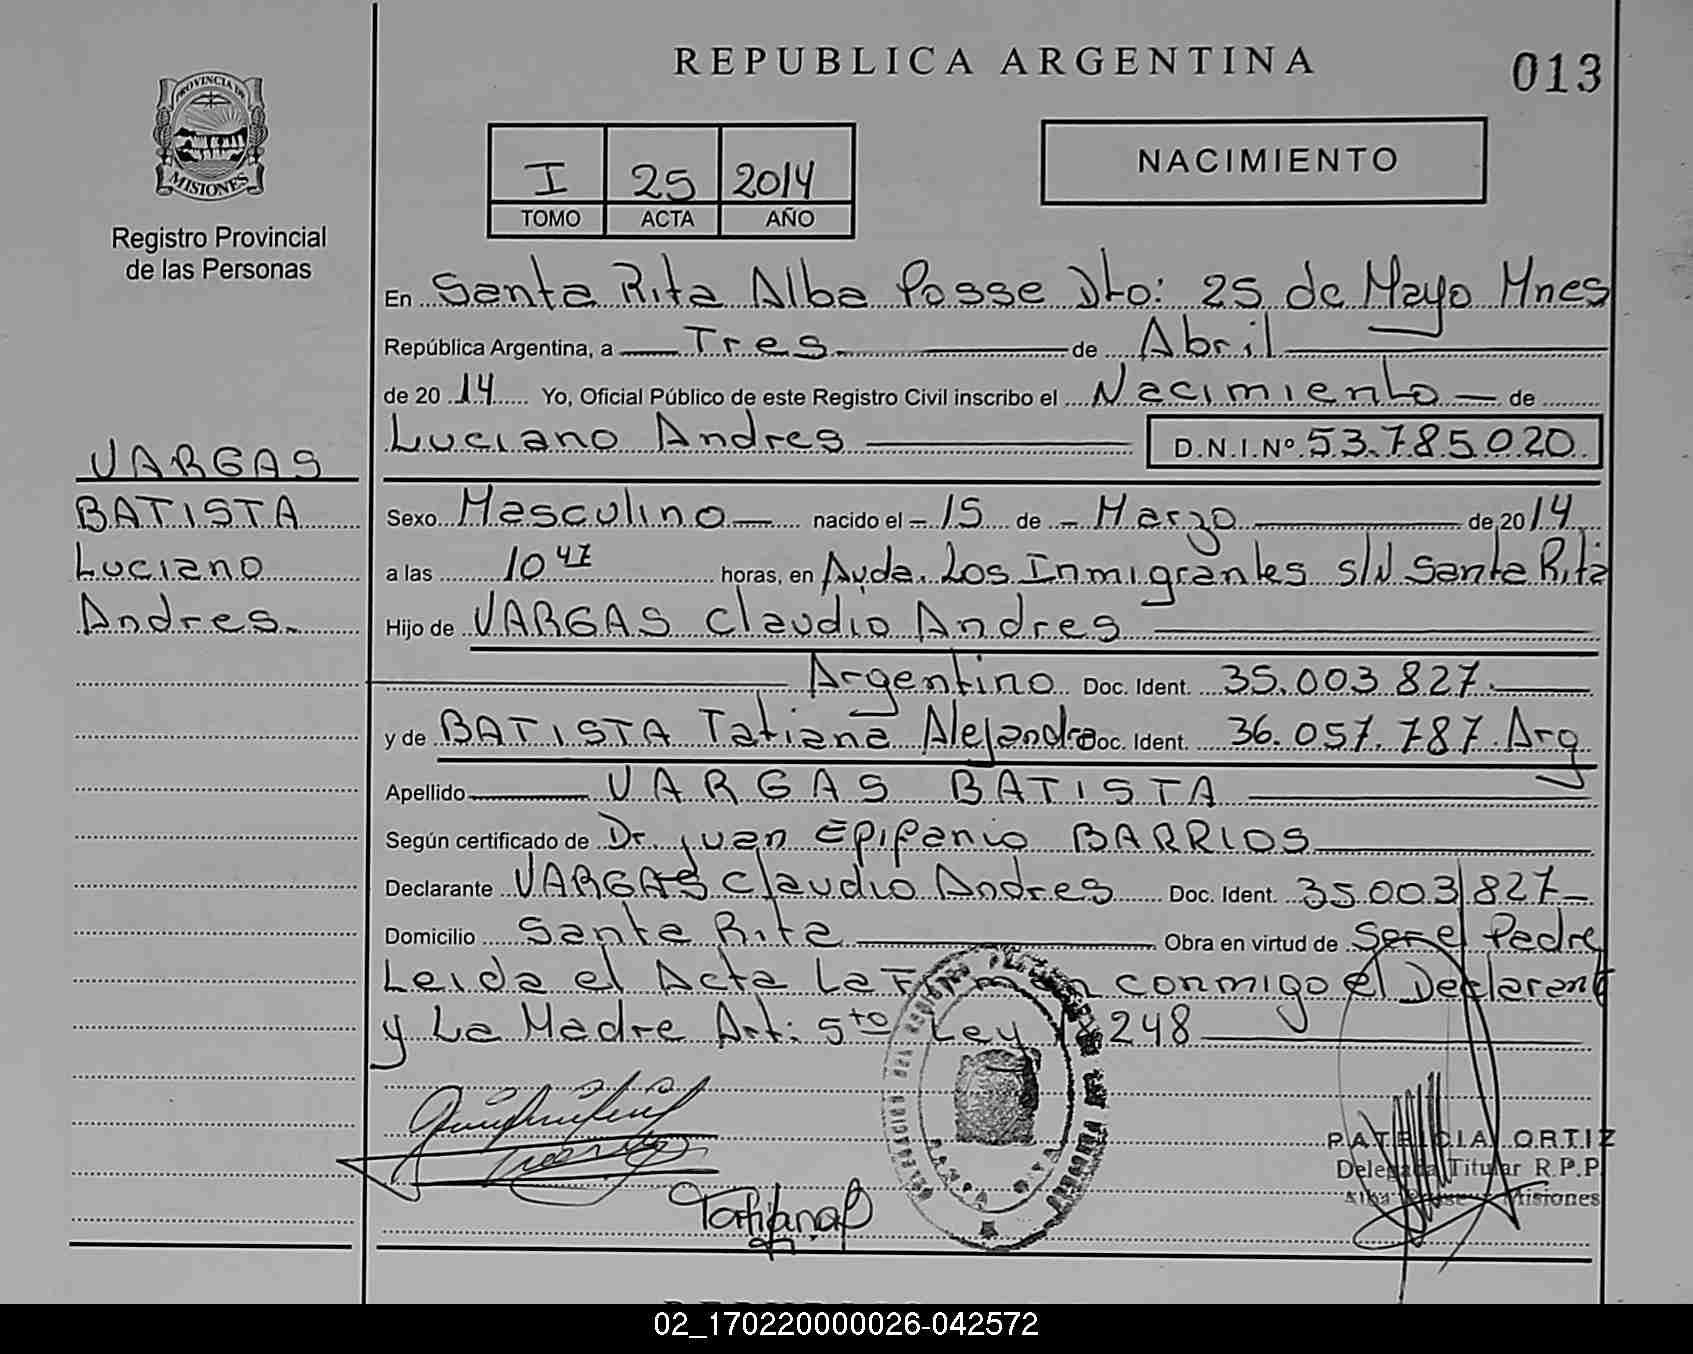 REPUBLICA ARGENTINA
013
PROVINCIA DE
MISIONES
Registro Provincial
de las Personas
I 25 2014
TOMO ACTA AÑO
NACIMIENTO
En Santa Rita Alba Posse Dto: 25 de Mayo Mnes
República Argentina, a Tres de Abril
de 2014 Yo, Oficial Público de este Registro Civil inscribo el Nacimiento de
Luciano Andres D.N.I.Nº 53.785.020
VARGAS
BATISTA
Luciano
Andres.
Sexo Masculino nacido el 15 de Marzo de 2014
a las 10 47 horas, en Avda. Los Inmigrantes s/N Santa Rita
Hijo de VARGAS Claudio Andres
Argentino Doc. Ident. 35.003.827
y de BATISTA Tatiana Alejandra Doc. Ident. 36.057.787 Arg
Apellido VARGAS BATISTA
Según certificado de Dr. Juan Epifanio BARRIOS
Declarante VARGAS Claudio Andres Doc. Ident. 35.003.827
Domicilio Santa Rita Obra en virtud de Ser el Padre
Leida el Acta La Firman conmigo el Declarant
y La Madre Art: 5to Ley 248
PATRICIA ORTIZ
Delegada Titular R.P.P.
Alba Posse Misiones
02_170220000026-042572